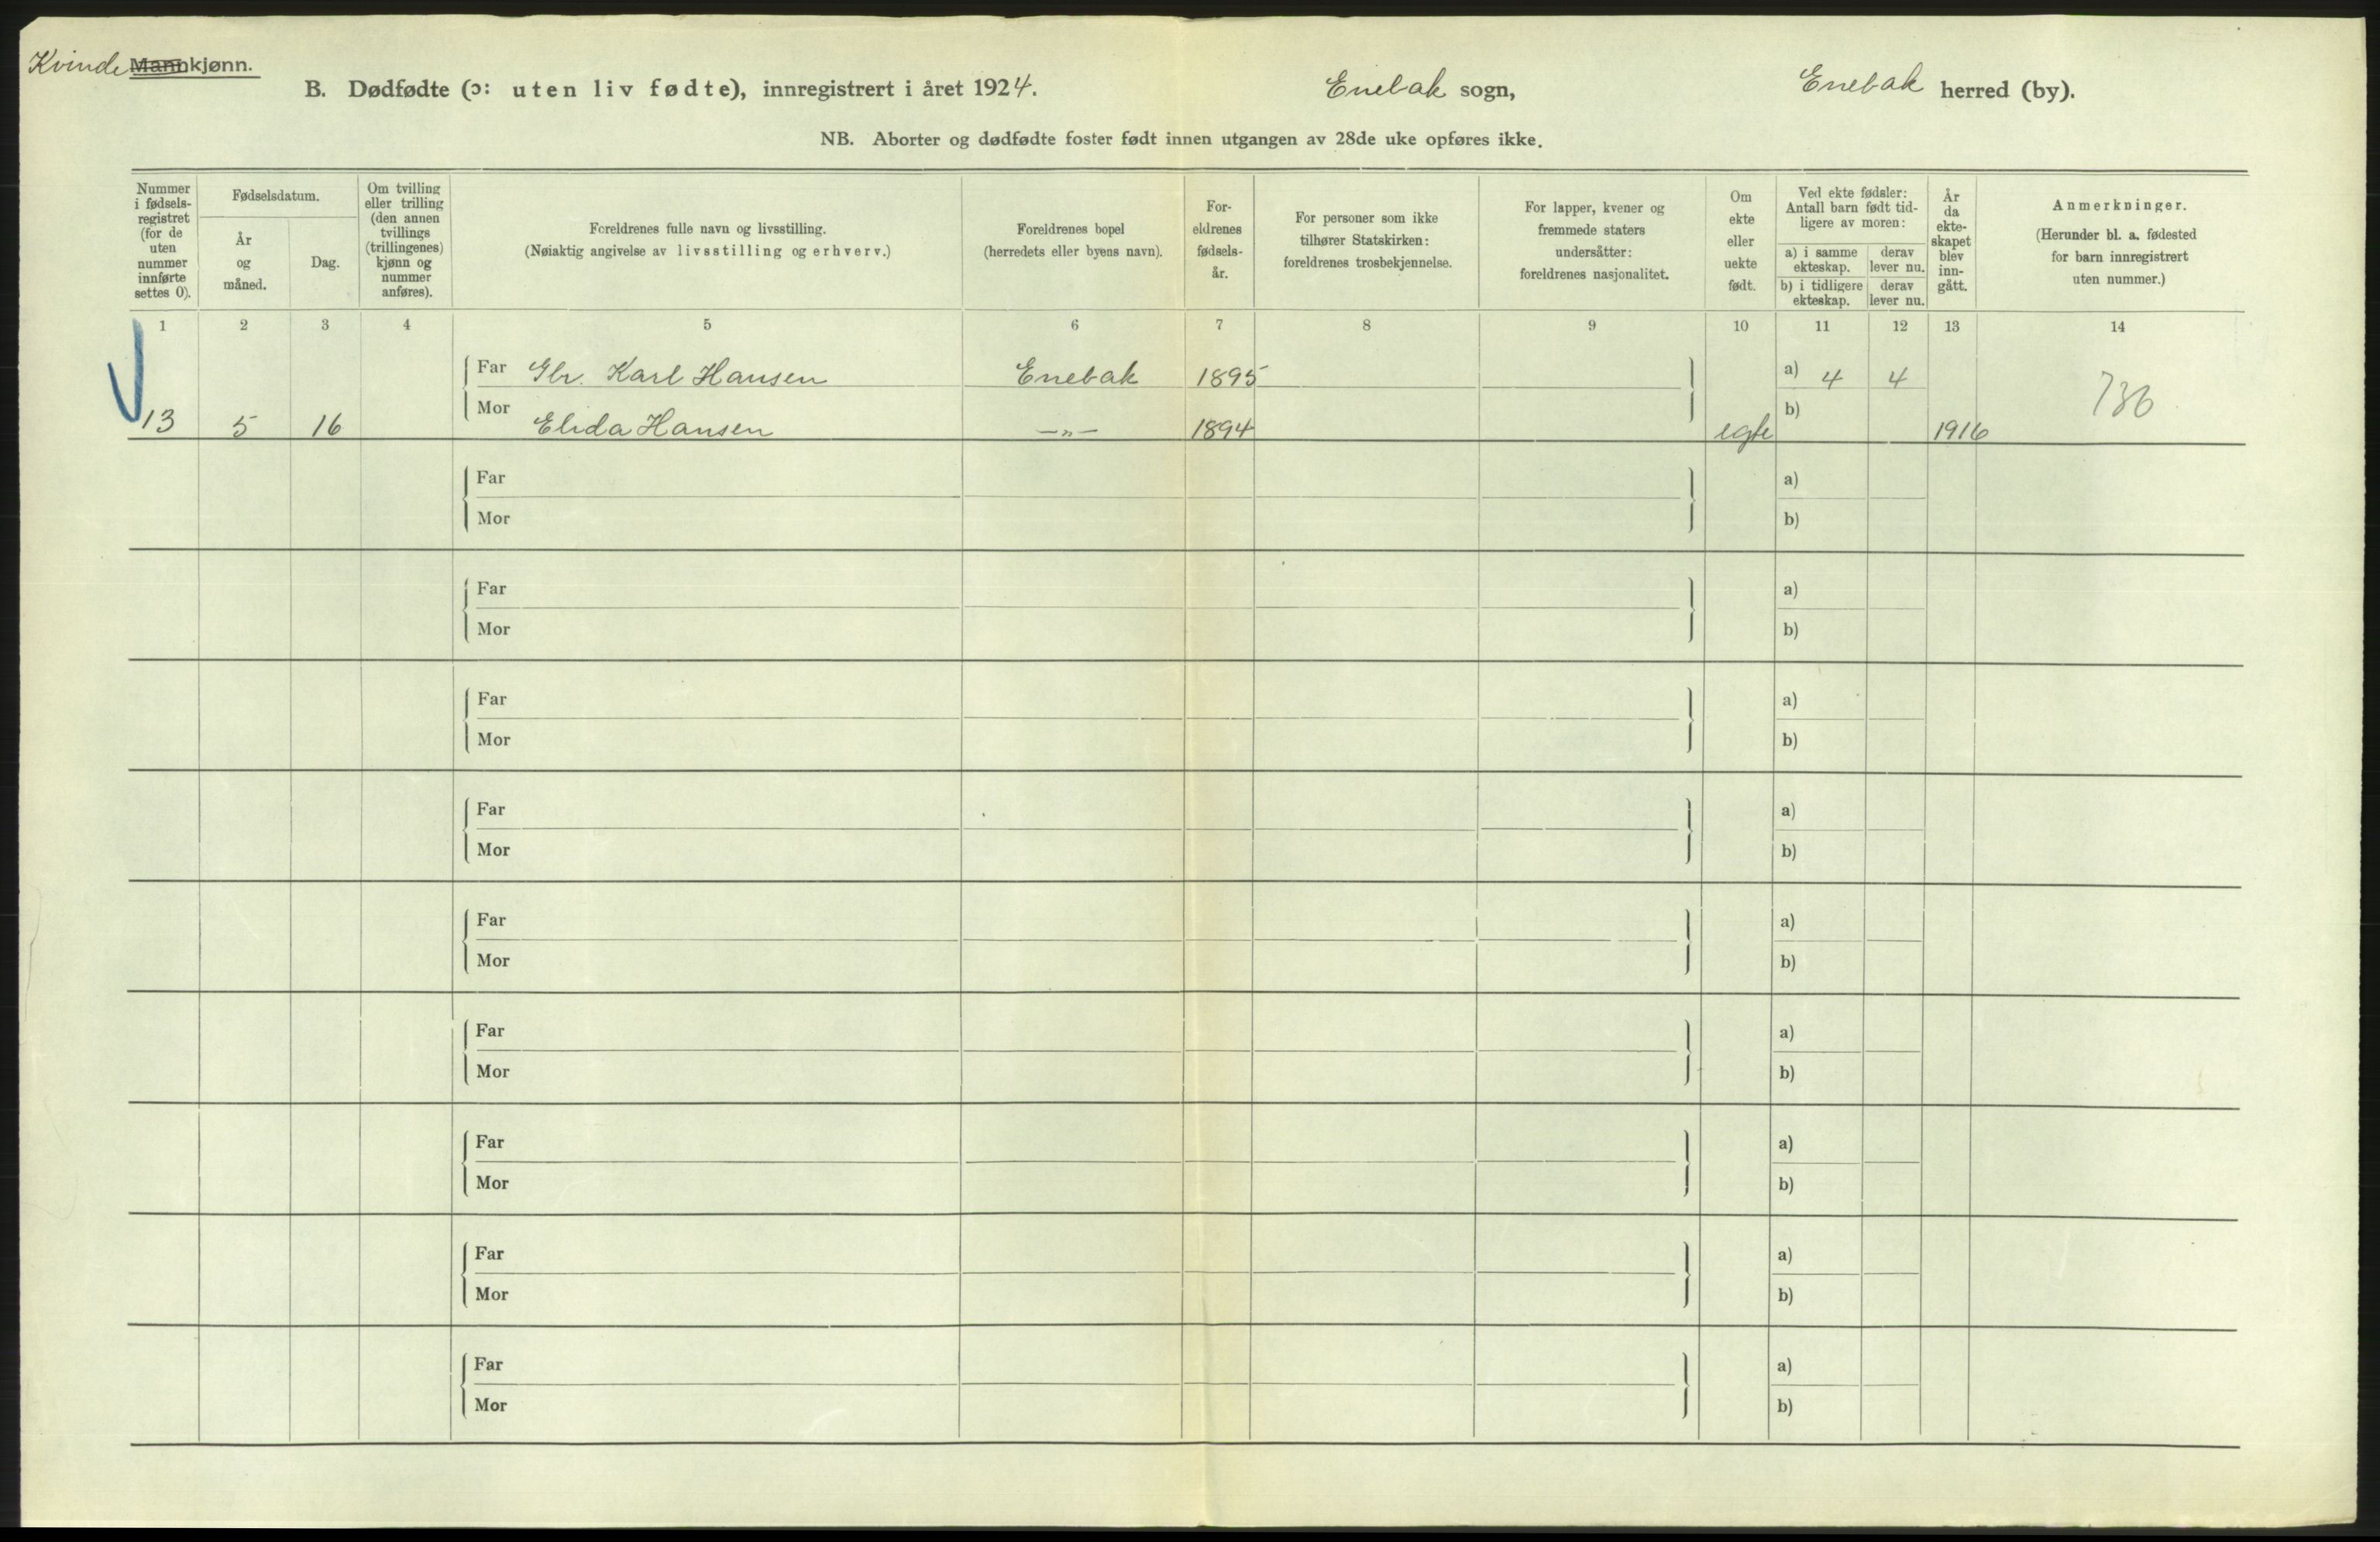 Kvinde Mannkjønn.
B. Dødfødte (ɔ: uten liv fødte), innregistrert i året 1924. Enebak sogn, Enebak herred (by).
NB. Aborter og dødfødte foster født innen utgangen av 28de uke opføres ikke.
Nummer i fødsels-registret (for de uten nummer innførte settes 0).
Fødselsdatum.
År og måned.
Dag.
Om tvilling eller trilling (den annen tvillings (trillingenes) kjønn og nummer anføres).
Foreldrenes fulle navn og livsstilling.
(Nøiaktig angivelse av livsstilling og erhverv.)
Foreldrenes bopel
(herredets eller byens navn).
For-eldrenes fødsels-år.
For personer som ikke tilhører Statskirken: foreldrenes trosbekjennelse.
For lapper, kvener og fremmede staters undersåtter: foreldrenes nasjonalitet.
Om ekte eller uekte født.
Ved ekte fødsler: Antall barn født tid-ligere av moren:
a) i samme ekteskap. derav lever nu.
b) i tidligere ekteskap. derav lever nu.
År da ekte-skapet blev inn-gått.
Anmerkninger.
(Herunder bl. a. fødested for barn innregistrert uten nummer.)
1 2 3 4 5 6 7 8 9 10 11 12 13 14
Far Gbr. Karl Hansen Enebak 1895 a) 4 4 736
13 5 16 Mor Elida Hansen —„— 1894 egte b) 1916
Far a)
Mor b)
Far a)
Mor b)
Far a)
Mor b)
Far a)
Mor b)
Far a)
Mor b)
Far a)
Mor b)
Far a)
Mor b)
Far a)
Mor b)
Far a)
Mor b)